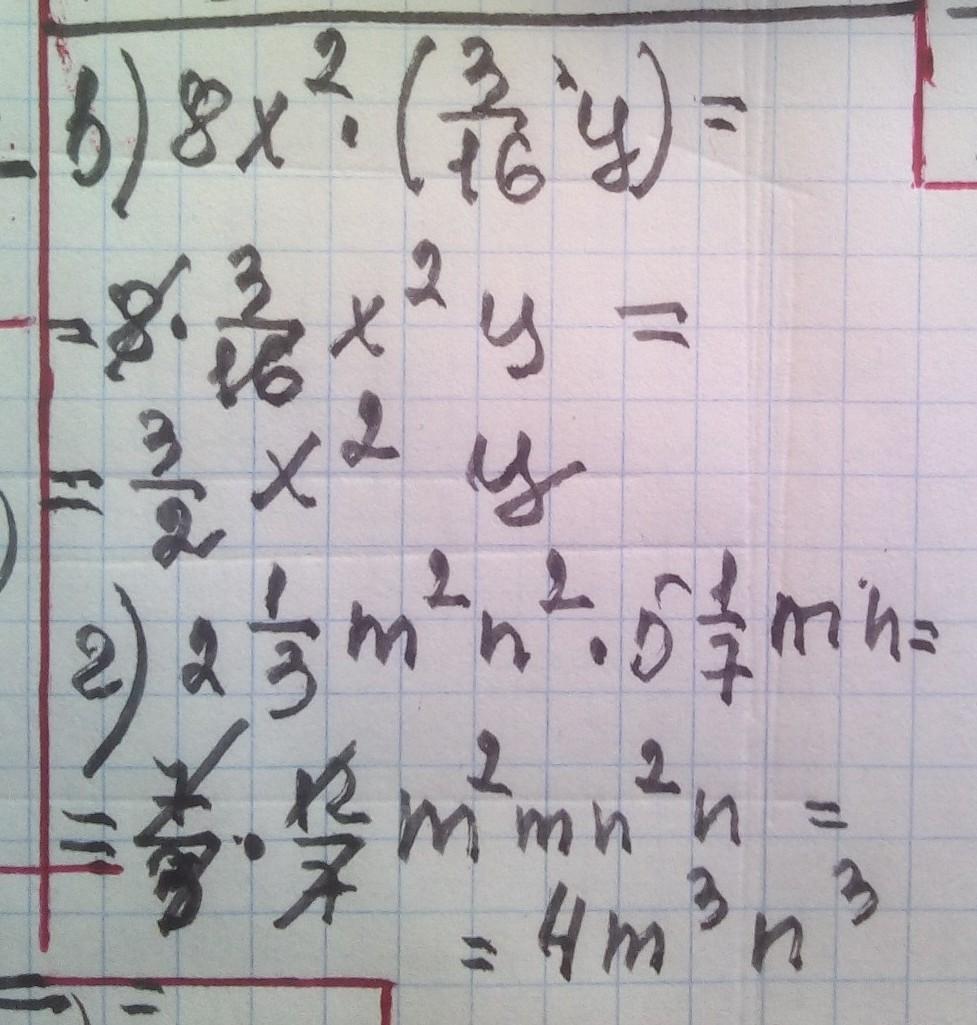 в) 8x² · (3/16 y) =
= 8 · 3/16 x² y =
= 3/2 x² y
г) 2 1/3 m² n² · 5 1/7 m n =
= 7/3 · 12/7 m² m n² n =
= 4 m³ n³